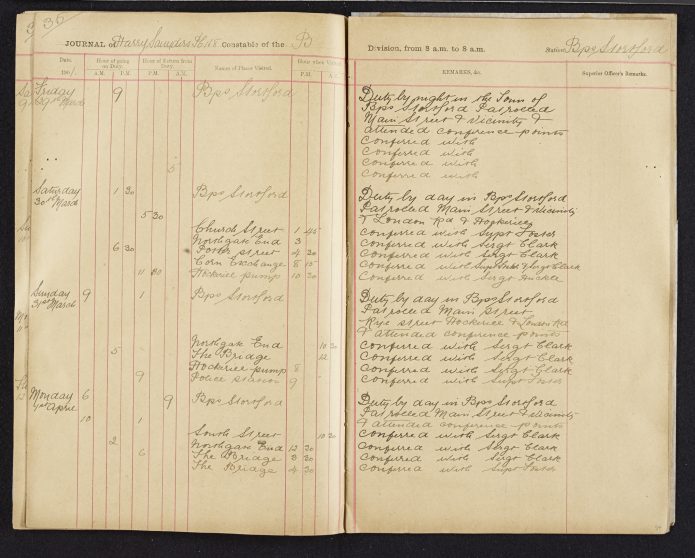 35
JOURNAL of Harry Saunders Constable of the B Division, from 8 a.m. to 8 a.m. Station Bps Stortford
Date 190 Hour of going on Duty. A.M. P.M. Hour of Return from Duty. P.M. A.M. Names of Places Visited. Hour when Visited. P.M. A.M. REMARKS, &c. Superior Officer's Remarks.
Friday 29th March 9 Bps Stortford Duty by night in the Town of
Bps Stortford Patrolled
Main Street & Vicinity &
attended conference points
Conferred with
Conferred with
Conferred with
Conferred with
5
Saturday 30th March 1 30 Bps Stortford Duty by day in Bps Stortford
Patrolled Main Street & Vicinity
5 30 & London Rd & Hockerill
Church Street 1 45 Conferred with Supt Foster
Northgate End 3 Conferred with Sergt Clark
6 30 Potter Street 4 30 Conferred with Sergt Clark
Corn Exchange 8 15 Conferred with Supt Foster & Sergt Clark
11 30 Hockerill pump 10 30 Conferred with Sergt
Sunday 31st March 9 1 Bps Stortford Duty by day in Bps Stortford
Patrolled Main Street
Rye Street Hockerill & London Rd
& attended conference points
Northgate End 10 30 Conferred with Sergt Clark
5 The Bridge 12 Conferred with Sergt Clark
Hockerill pump 8 Conferred with Sergt Clark
9 Police Station 9 Conferred with Supt Foster
Monday 1st April 6 9 Bps Stortford Duty by day in Bps Stortford
Patrolled Main Street & Vicinity
10 1 & attended conference points
South Street 10 30 Conferred with Sergt Clark
2 Northgate End 12 30 Conferred with Sergt Clark
6 The Bridge 3 30 Conferred with Sergt Clark
The Bridge 4 30 Conferred with Supt Foster